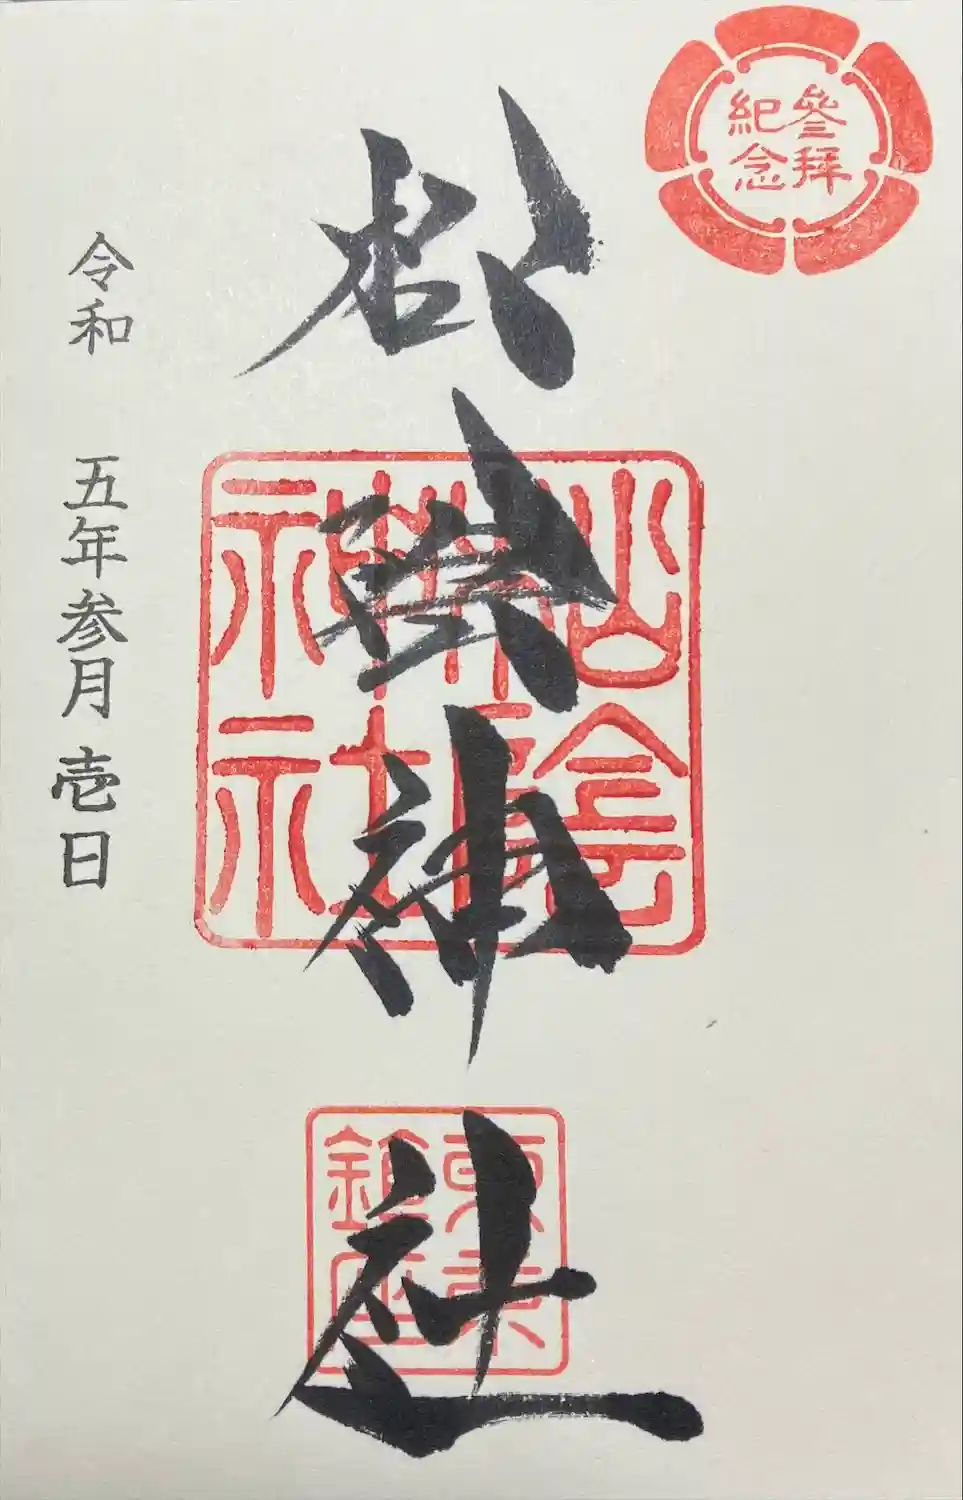 參拝
紀念
松陰神社
松陰
神社
東京
鎮座
令和 五年参月壱日